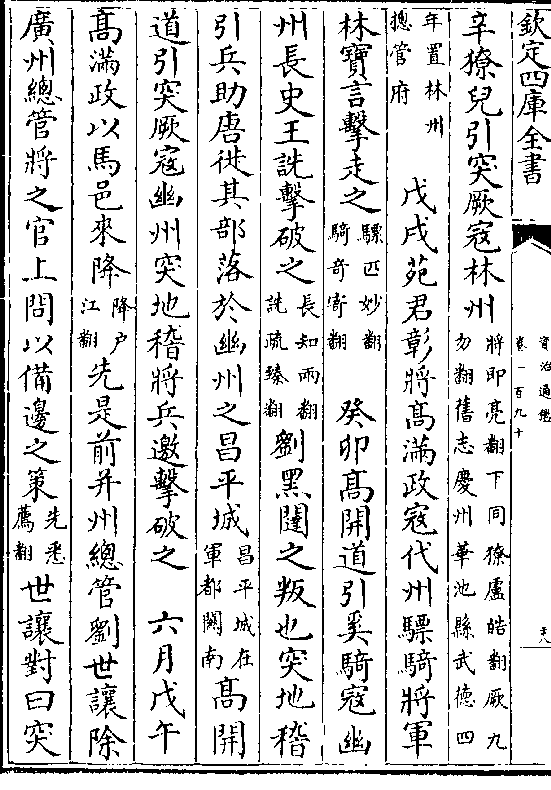 欽定四庫全書
資治通鑑
卷一百九十
辛獠兒引突厥寇林州將即亮翻下同獠盧皓翻厥九勿翻舊志慶州華池縣武德四
年置林州總管府 戊戌苑君彰將高滿政寇代州驃騎將軍
林寶言擊走之驃匹妙翻騎奇寄翻 癸卯高開道引奚騎寇幽
州長史王詵擊破之長知兩翻詵疏臻翻 劉黑闥之叛也突地稽
引兵助唐徙其部落於幽州之昌平城昌平城在軍都關南 高開
道引突厥寇幽州突地稽將兵邀擊破之 六月戊午
高滿政以馬邑來降降户江翻 先是前并州總管劉世讓除
廣州總管將之官上問以備邊之策先悉薦翻 世讓對曰突